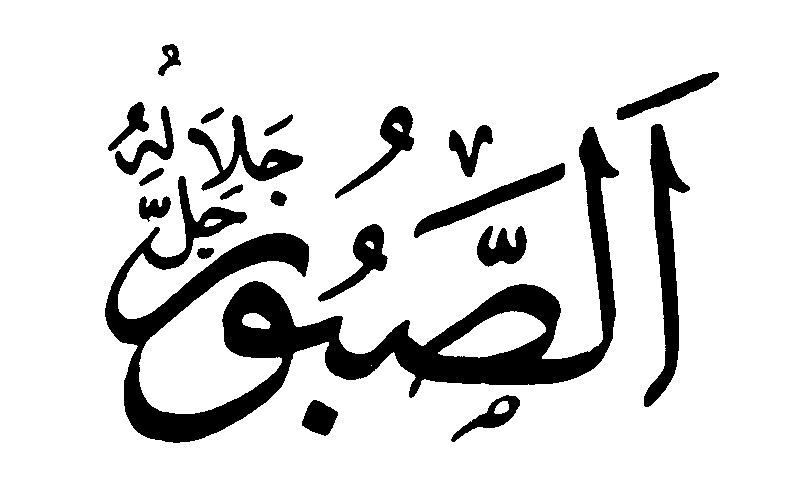 اَلصَّبُورُ
جَلَّ جَلَالُهُ